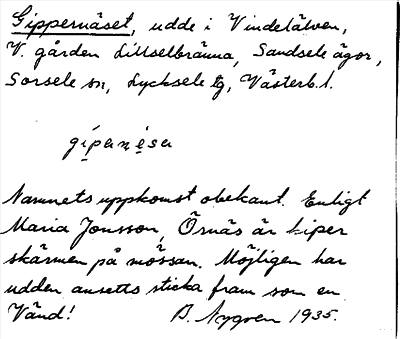 Gippernäset, udde i Vindelälven,
V. gården Lillselbränna, Sandsele ägor,
Sorsele sn, Lycksele tg, Västerb. l.
gípęnę́sa
Namnets uppkomst obekant. Enligt
Maria Jonsson, Örnäs är kiper
skärmen på mössan. Möjligen har
udden ansetts sticka fram som en
Vänd! B. Nygren 1935.